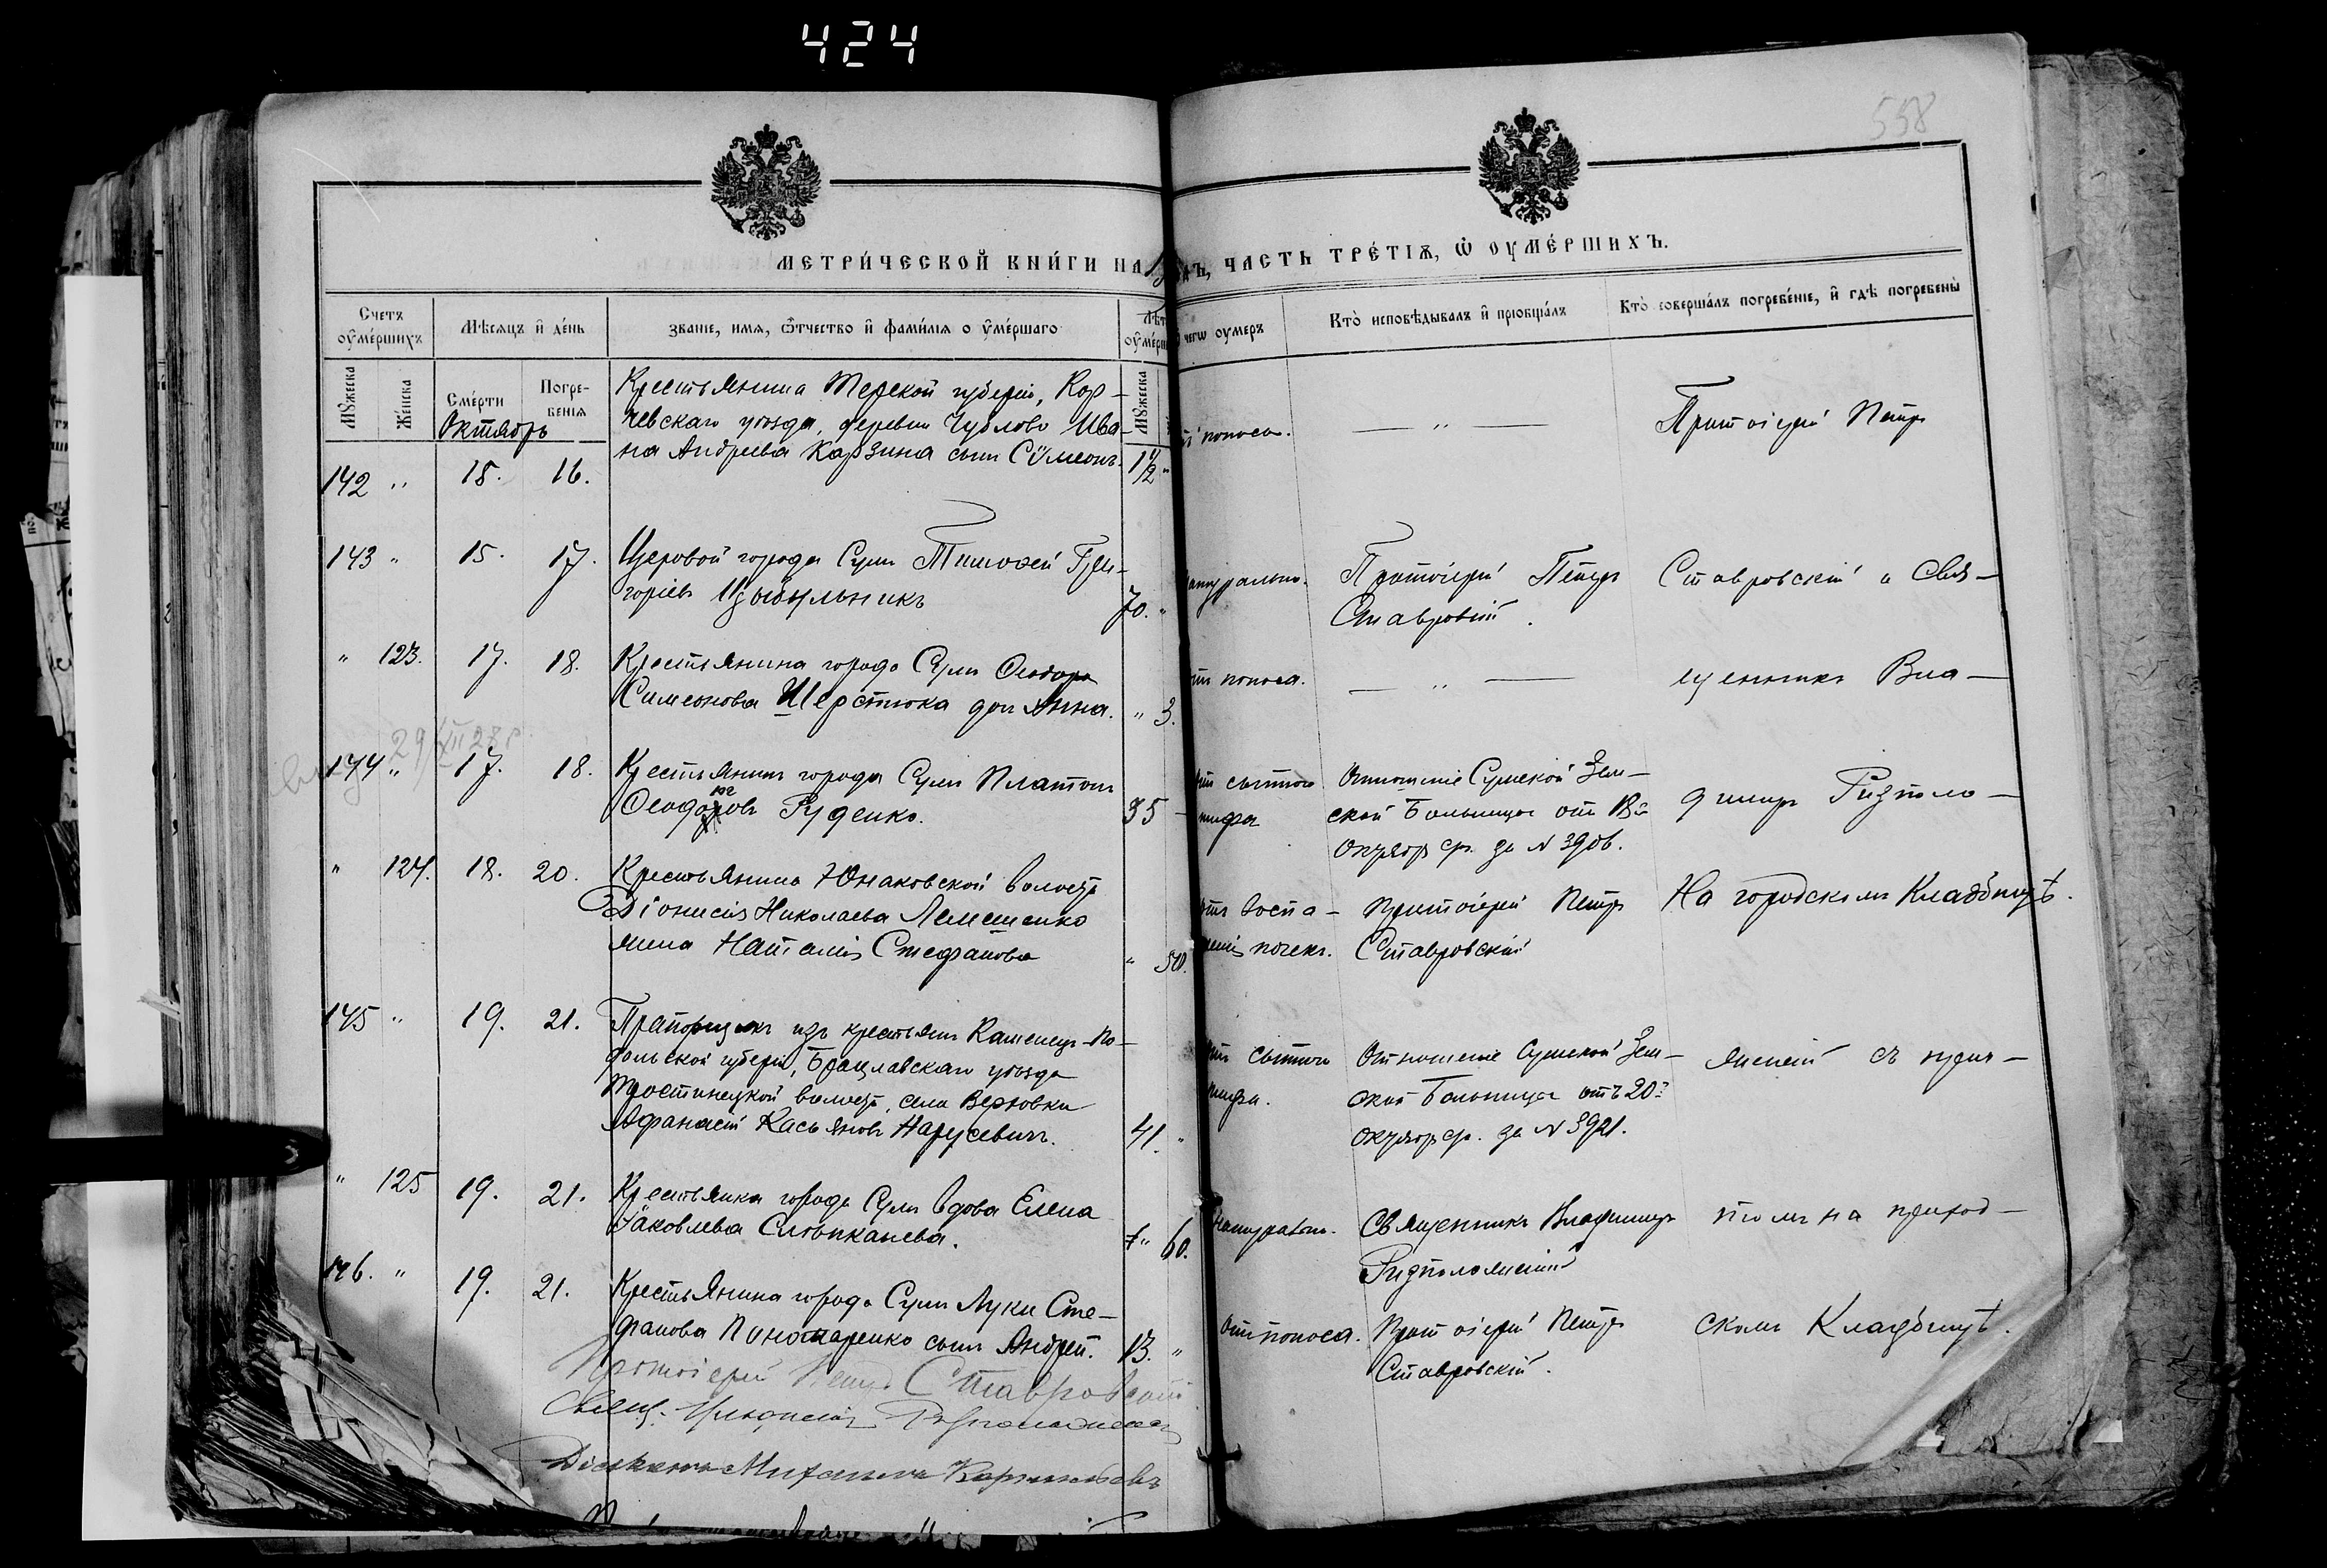 424
558
МЕТРИЧЕСКОЙ КНИГИ НА
ЧАСТЬ ТРЕТІѦ, Ѡ ОУМЕРШИХЪ.
Счетъ оумершихъ
Мѣсяцъ и день
Званіе, имя, отчество и фамилія оумершаго
Кто исповѣдывалъ и пріобщалъ
Кто совершалъ погребеніе, и гдѣ погребены
Мужеска
Женска
Смерти
Погребенія
Мужеска
чегѡ оумеръ
Октябрь
142 " 15. 16.
Крестьянина Терской губерніи, Кор-
чевскаго уѣзда, деревни Чублово Ива-
на Андреева Карзина сынъ Сѵмеонъ. 1 1/2 "
поноса. — " —
Протоіерей Петръ
143 " 15. 17.
Цеховой города Сумъ Тимоѳей Гри-
горіевъ Цыбульникъ 70. "
натурально. Протоіерей Петръ
Ставровскій.
Ставровскій и Свя-
" 123. 17. 18.
Крестьянина города Сумъ Ѳеодора
Симеонова Шерстюка дочь Анна. " 3.
поноса. — " —
щенникъ Вла-
29/XII 28 г.
144 " 17. 18.
Крестьянинъ города Сумъ Платонъ
Ѳеодоровъ Руденко. 35 -
сыпного
тифа
Отношеніе Сумской Зем-
ской Больницы отъ 18го
октября с.г. за № 3906.
димиръ Ризполо-
" 124. 18. 20.
Крестьянина Юнаковской волости
Діонисія Николаева Лемешенко
жена Наталія Стефанова " 50.
воспа-
ленія почекъ.
Протоіерей Петръ
Ставровскій
На городскомъ Кладбищѣ.
145 " 19. 21.
Прапорщикъ изъ крестьянъ Каменецъ-По-
дольской губерніи, Брацлавскаго уѣзда
Тростянецкой волости, села Верховки
Аѳанасій Касьяновъ Нарусевичъ. 41. "
сыпного
тифа.
Отношеніе Сумской Зем-
ской Больницы отъ 20го
октября с.г. за № 3921.
женскій съ прич-
" 125 19. 21.
Крестьянка города Сумъ вдова Елена
Іаковлева Слѣпканева. " 60.
натурально. Священникъ Владимиръ
Ризположенскій
томъ на приход-
146. " 19. 21.
Крестьянина города Сумъ Луки Сте-
фанова Пономаренко сынъ Андрей. 13. "
Отъ поноса. Протоіерей Петръ
Ставровскій.
скомъ Кладбищѣ.
Протоіерей Петръ Ставровскій
Свящ.
Діаконъ Михаилъ